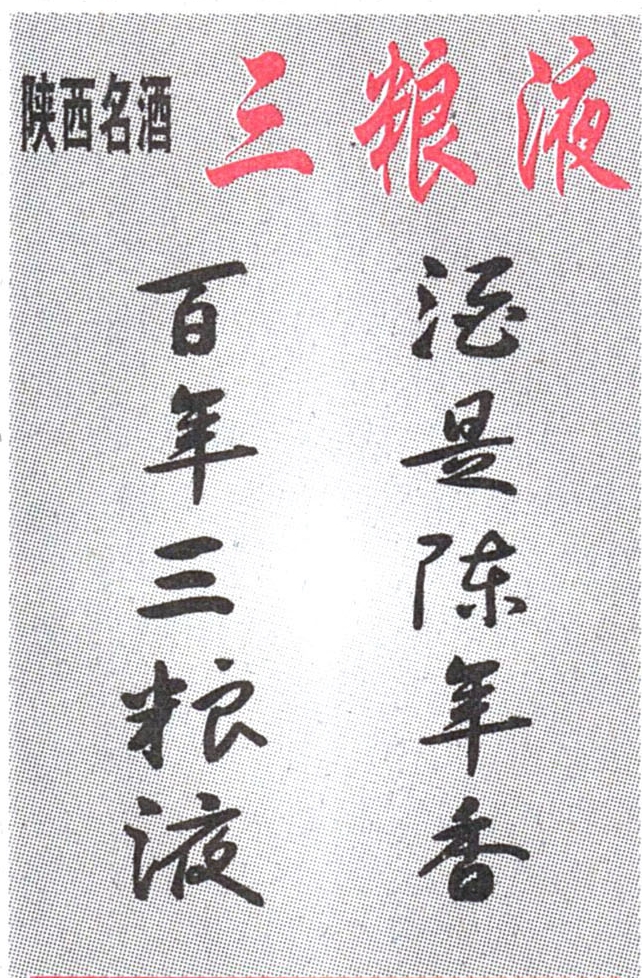 陕西名酒 三粮液
酒是陈年香
百年三粮液